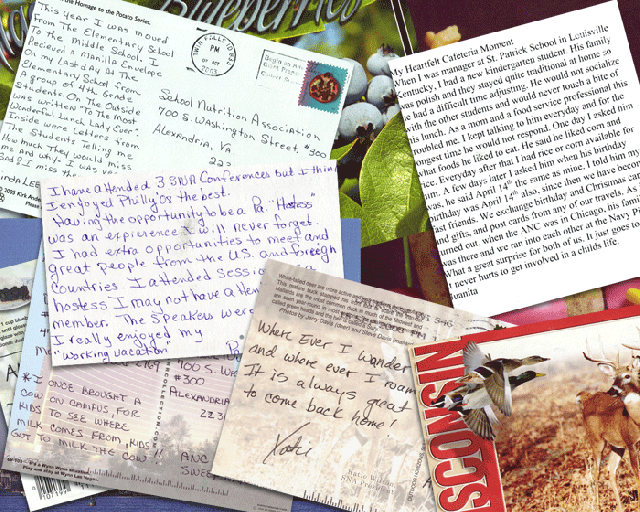 Blueberries
the Homage to the Potato Series.
This year I was moved
From The Elementary School
To The Middle School. I
Recieved a Manilla Envelope
on my Last Day at The
Elementary School from
A group of 4th Grade
Students On The Outside
was written To The Most
Wonderful Lunch Lady Ever".
Inside were Letters from
The Students Telling me
How much They would miss
me and why. I was
PM
2005
School Nutrition Association
700 S. Washington Street #300
Alexandria, Va
223
I have attended 3 SNA Conferences but I think
I enjoyed Philly '02 the best.
Having the opportunity to be a Pa. "Hostess"
was an expirence I will never forget.
I had extra opportunities to meet and
great people from the U.S. and foreign
Countries. I attended Sess
hostess I may not have atten
member. The Speakers wer
I really enjoyed my
"working vacation"
My Heartfelt Cafeteria Moment
When I was manager at St. Patrick School in Louisville
Kentucky, I had a new kindergarten student. His family
was polish and they stayed quite traditional at home so
he had a difficult time adjusting. He would not socialize
with the other students and would never touch a bite of
his lunch. As a mom and a food service professional this
troubled me. I kept talking to him everyday and for the
longest time he would not respond. One day I asked him
what foods he liked to eat. He said he liked corn and
rice. Everyday after that I had rice or corn available for
him. A few days later I asked him when his birthday
was, he said April 14th the same as mine. I told him my
birthday was April 14th also, since then we have become
fast friends. We exchange birthday and Christmas cards
and gifts, and post cards from any of our travels. As it
turned out, when the ANC was in Chicago, his family
was there and we ran into each other at the Navy Pier.
What a great surprise for both of us. It just goes to show
it never hurts to get involved in a childs life.
Juanita
100 S. W
#300
Alexandria
223
* I ONCE BROUGHT A
COW ON CAMPUS FOR
KIDS TO SEE WHERE
MILK COMES FROM, KIDS
GOT TO MILK THE COW !!
ANC
SWEEP
Where Ever I wander
and where ever I roam
It is always great
to come back home!
Katie
Katie Wilson
SNA President
WISCONSIN